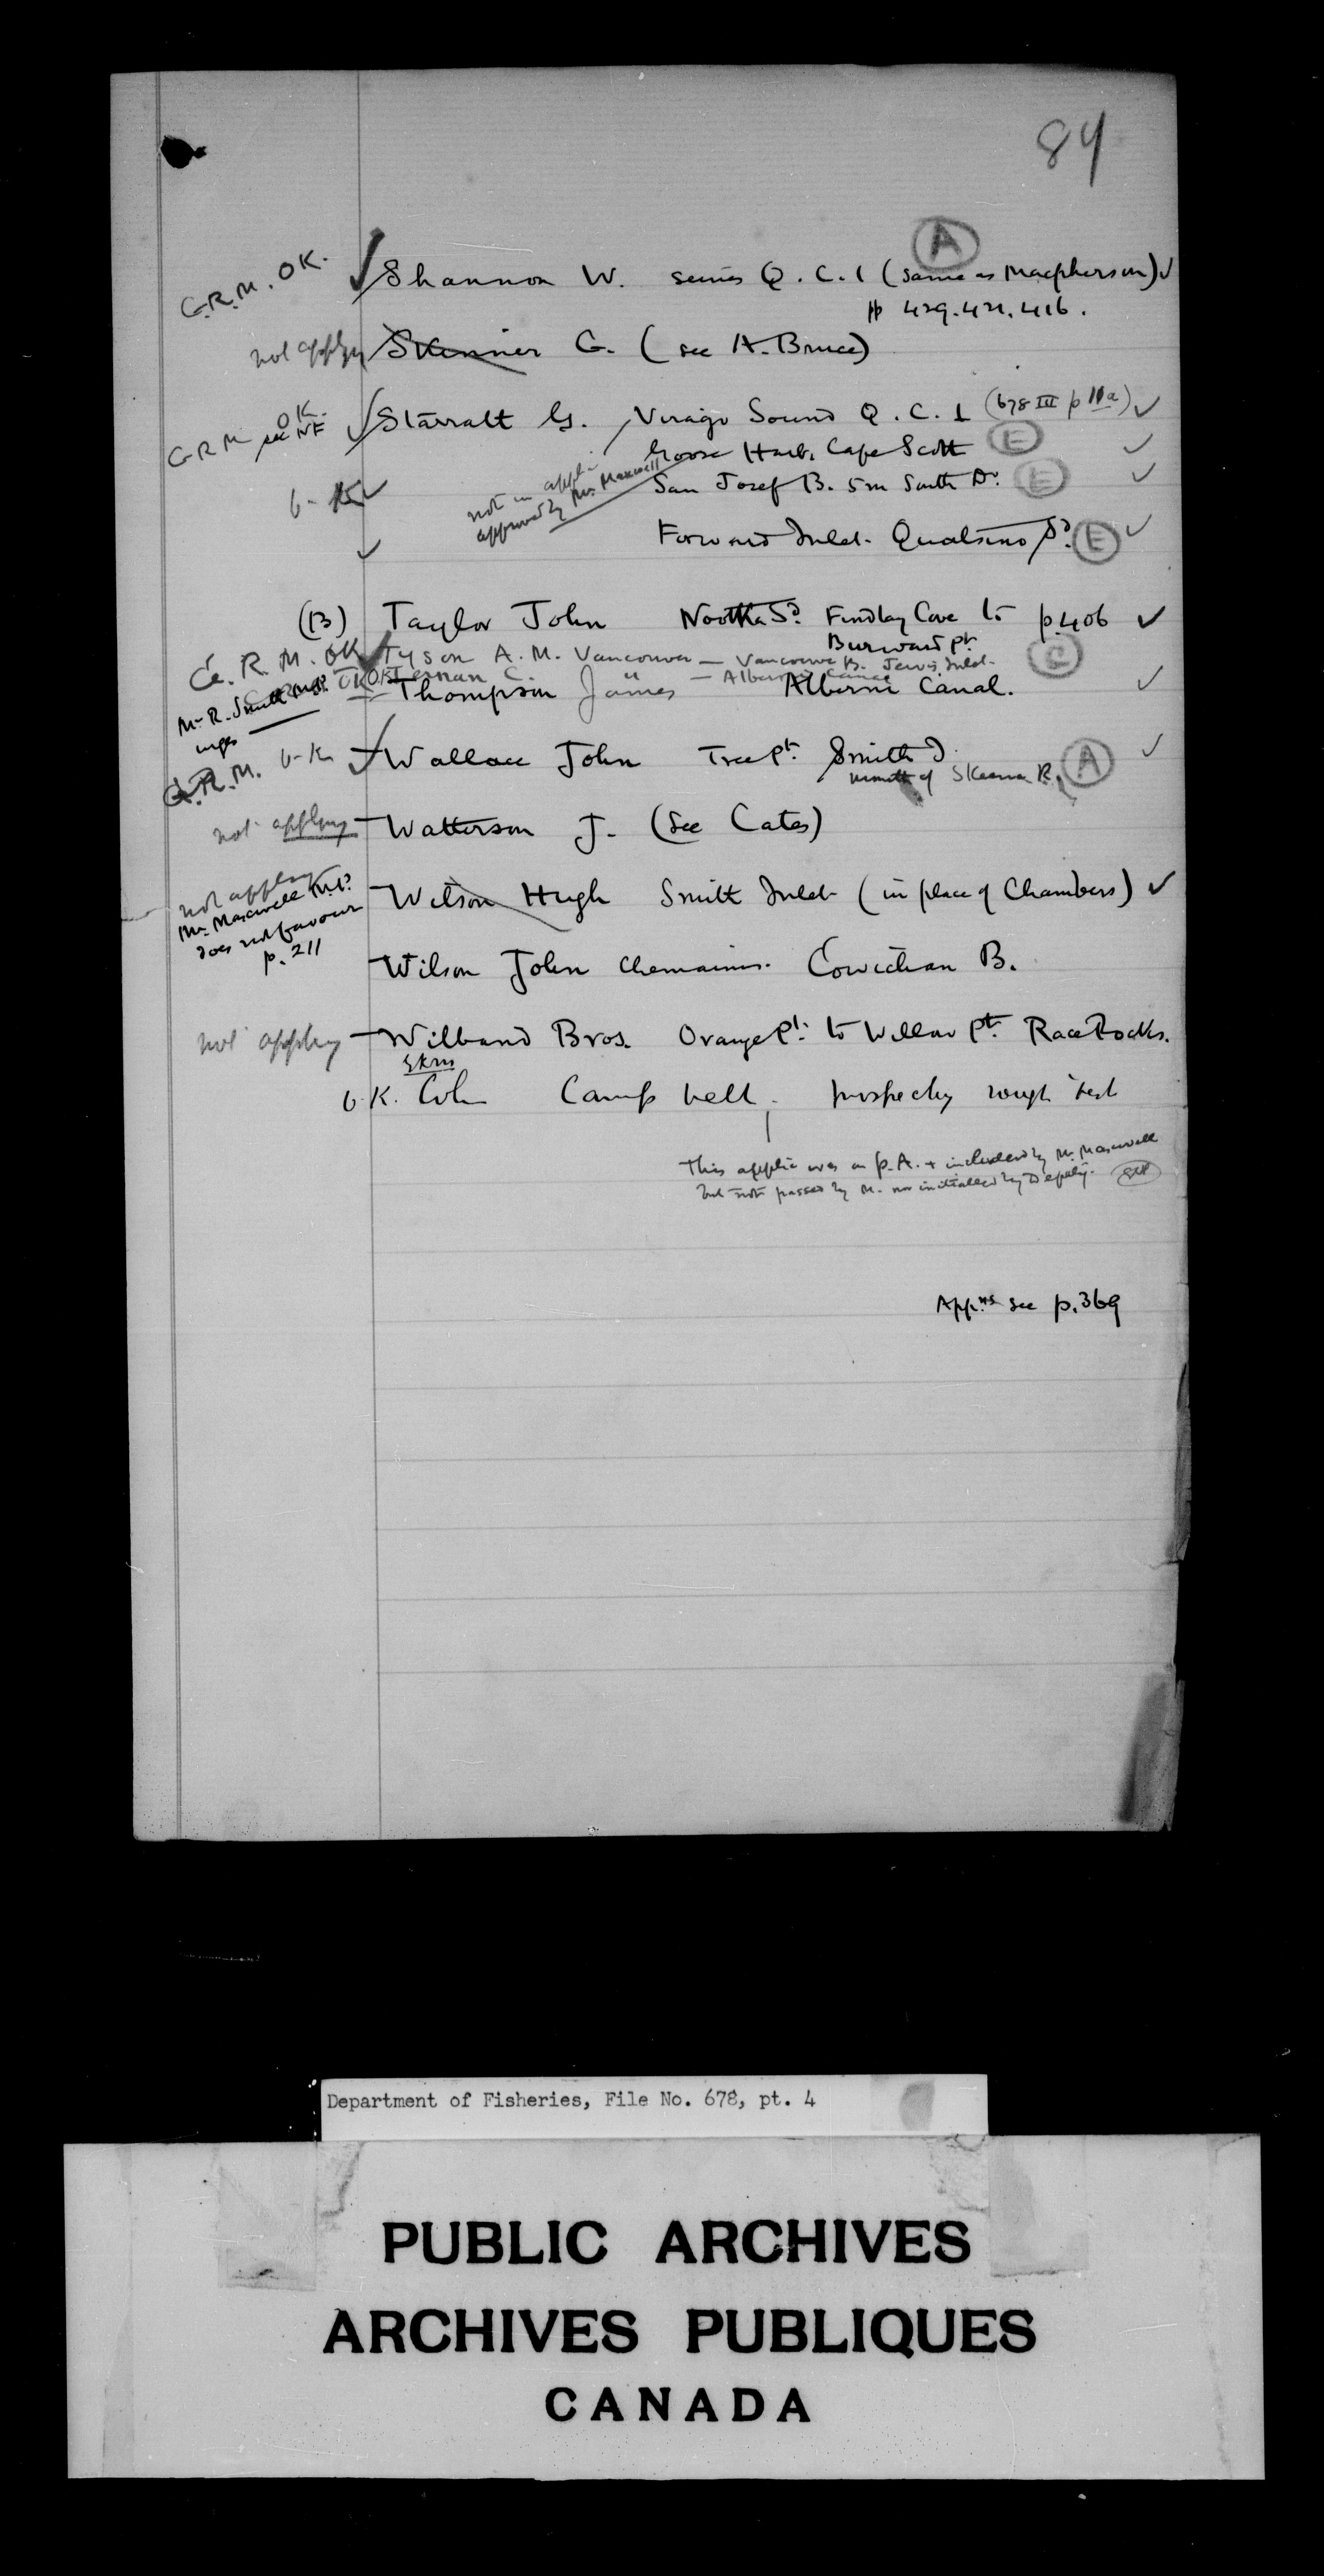 84
A
G.R.M. OK. Shannon W. seines Q.C.I (same as Macpherson)
pp 429.421.416.
not apply Skinner G. (see A. Bruce)
G.R.M OK. Starratt G. Virago Sound Q.C.I (678 III p 11a)
Goose Harb. Cape Scott E
not in applic San Josef B. 5m South Do. E
approved by Mr. Maxwell
Forward Inlet. Quatsino Sd. E
(B) Taylor John Nootka Sd. Findlay Cove to p406
Burward pt.
G.R.M. OK Tyson A.M. Vancouver — Vancouver B. Jervis Inlet. C
OK Tiernan C. — Alberni Canal
Mr. R. Smith M.P. Thompson James Alberni Canal.
urges
G.R.M. O-K Wallace John Tree Pt. Smith I.
mouth of Skeena R. A
not applyg Watterson J. (See Cates)
not apply
Mr. Maxwell M.P. Wilson Hugh Smith Inlet (in place of Chambers)
does not favour
p. 211
Wilson John Chemainus. Cowichan B.
not apply Wilband Bros. Orange Pt. to Willow Pt. Race Rocks.
O.K. Campbell
This applic was on p.A. + included by Mr. Maxwell
but not passed by M. nor initialled by Deputy.
Appns see p.369
Department of Fisheries, File No. 678, pt. 4
PUBLIC ARCHIVES
ARCHIVES PUBLIQUES
CANADA